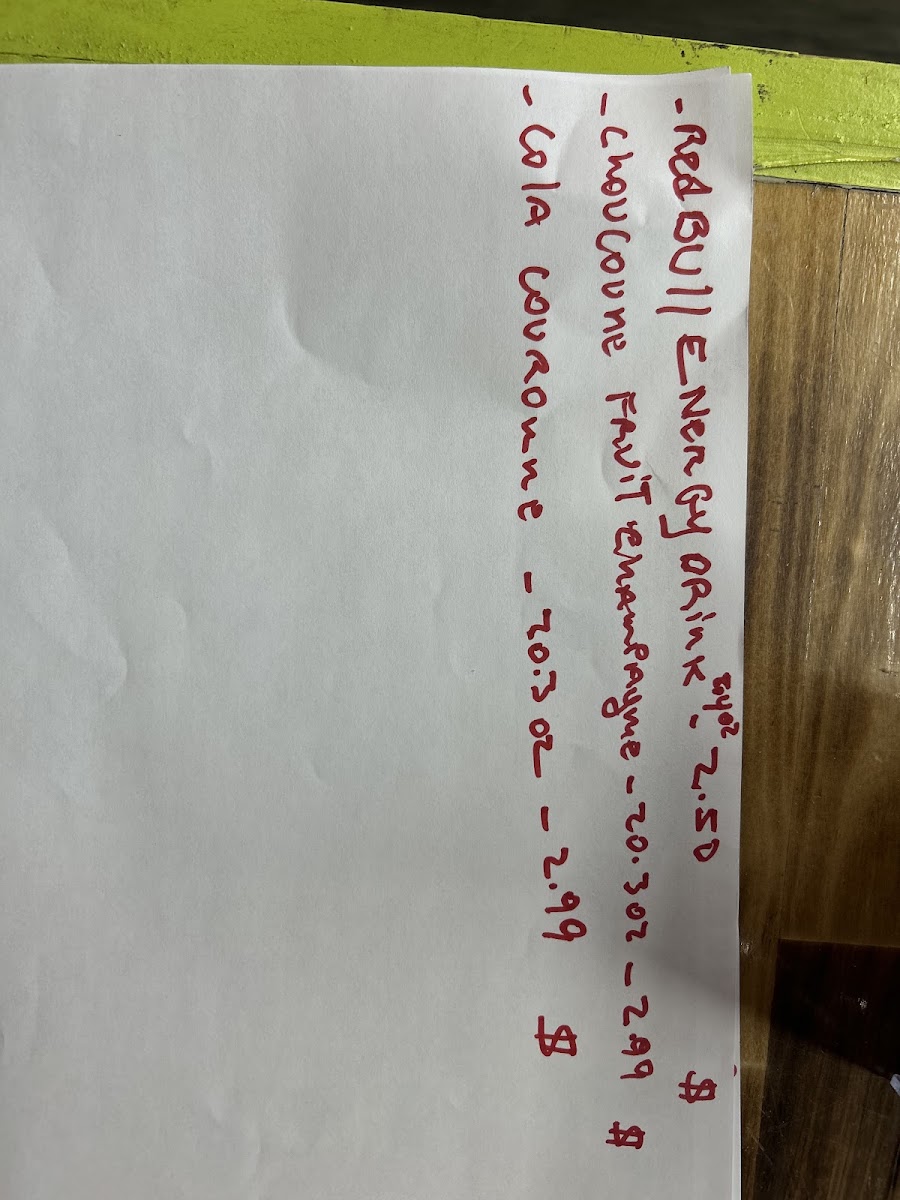 - Red BUll ENerGy DRinK 8,4oz - 2.50 $
- CHOUCOUNE FRUiT CHAMPAyNE - 20.3oz - 2.99 $
- ColA COUROnnE - 20.3 oz - 2.99 $